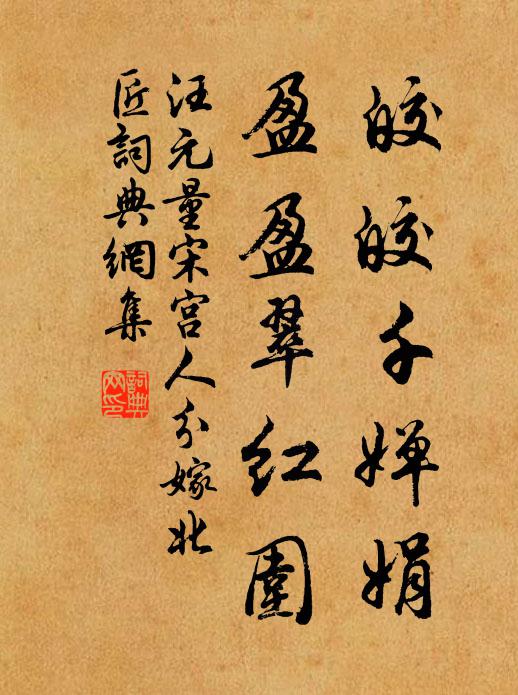 皎皎千嬋娟
盈盈翠紅圍
汪元量宋宮人分嫁北
匠詞典網集
詞典網印